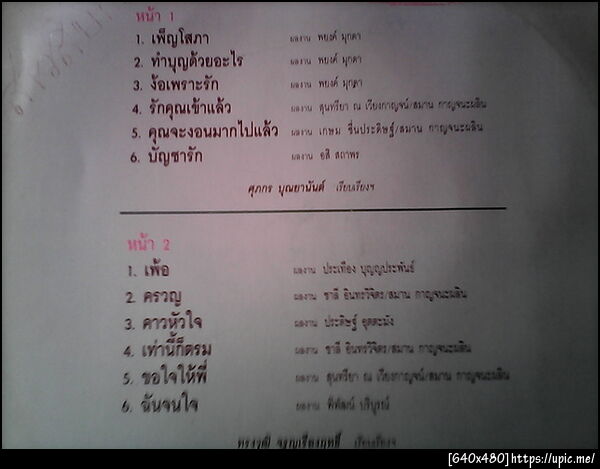 หน้า 1
1. เพ็ญโสภา ผลงาน พยงค์ มุกดา
2. ทำบุญด้วยอะไร ผลงาน พยงค์ มุกดา
3. ง้อเพราะรัก ผลงาน พยงค์ มุกดา
4. รักคุณเข้าแล้ว ผลงาน สุนทรียา ณ เวียงกาญจน์/สมาน กาญจนะผลิน
5. คุณจะงอนมากไปแล้ว ผลงาน เกษม ชื่นประดิษฐ์/สมาน กาญจนะผลิน
6. บัญชารัก ผลงาน อสิ สถาพร
ศุภกร บุณยานันต์ เรียบเรียงฯ
หน้า 2
1. เพ้อ ผลงาน ประเทือง บุญญประพันธ์
2. ครวญ ผลงาน ชาลี อินทรวิจิตร/สมาน กาญจนะผลิน
3. คาวหัวใจ ผลงาน ประดิษฐ์ อุตตะมัง
4. เท่านี้ก็ตรม ผลงาน ชาลี อินทรวิจิตร/สมาน กาญจนะผลิน
5. ขอใจให้พี่ ผลงาน สุนทรียา ณ เวียงกาญจน์/สมาน กาญจนะผลิน
6. ฉันจนใจ ผลงาน พิพัฒน์ บริบูรณ์
ทรงวุฒิ จรูญเรืองฤทธิ์ เรียบเรียงฯ
[640x480]https://upic.me/